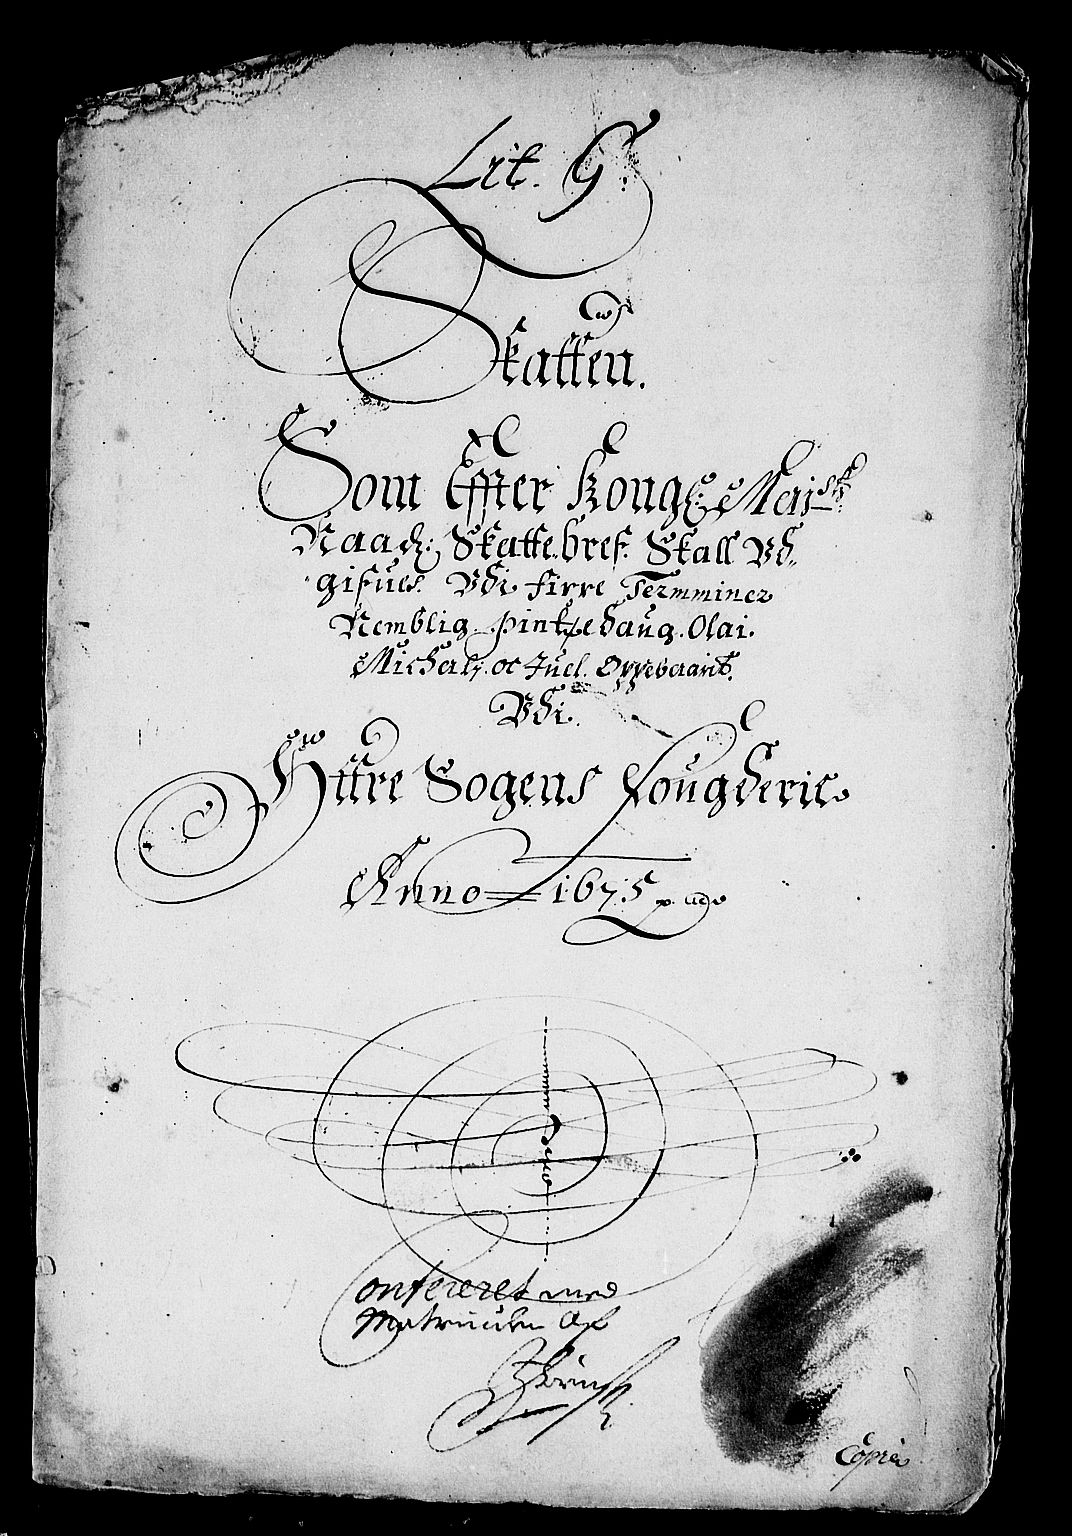 Lit. G
Skatten.
Som Effter Kongl: Maijsts:
Naadz: Skatte.bref. Skall Vd„
gifues. Vdi firre Termminer
Nemblig. Pintzedaug. Olai.
Michaelj. oc Juel. Oppebaarit.
Vdi.
Yttre Sogens Fougderie
Anno 1675
Confereret med
Matriculen Af
Copia